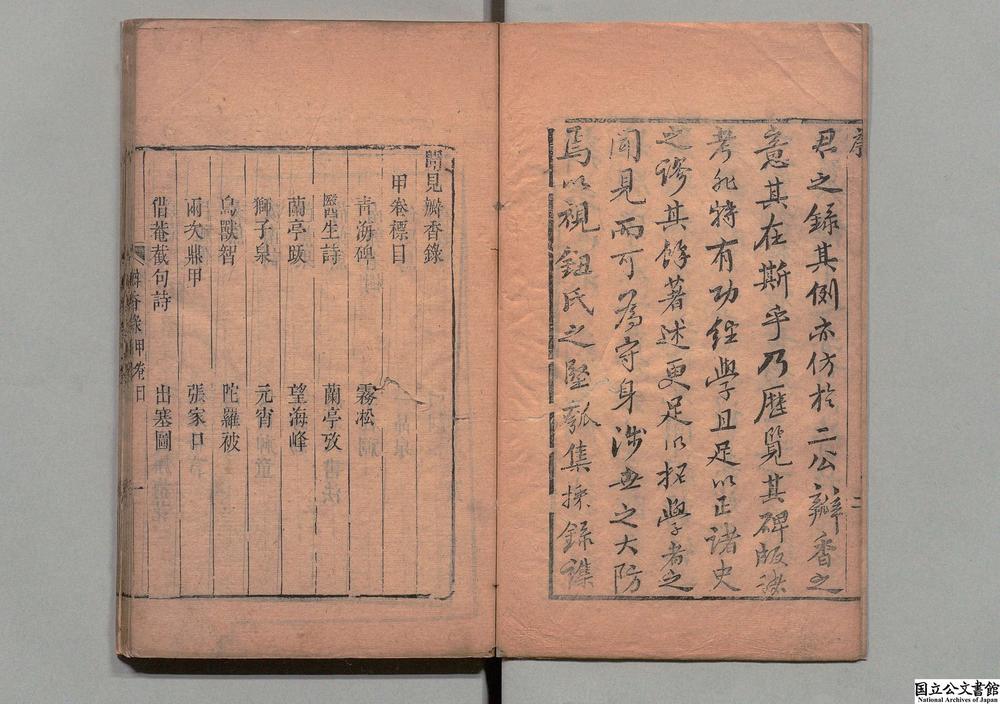 序
二
君之錄其例亦仿於二公瓣香之
意其在斯乎乃歷覽其碑版諸
考非特有功經學且足以正諸史
之謬其餘著述更足以拓學者之
聞見而可為守身涉世之大防
焉以視鈕氏之堅瓠集摭錄謙
聞見瓣香錄
甲卷標目
青海碑
霧凇
醫生詩
蘭亭攷
蘭亭跋
望海峰
獅子泉
元宵
鳥獸智
陀羅被
兩次鼎甲
張家口
借菴截句詩
出塞圖
瓣香錄甲卷目
一
国立公文書館
National Archives of Japan